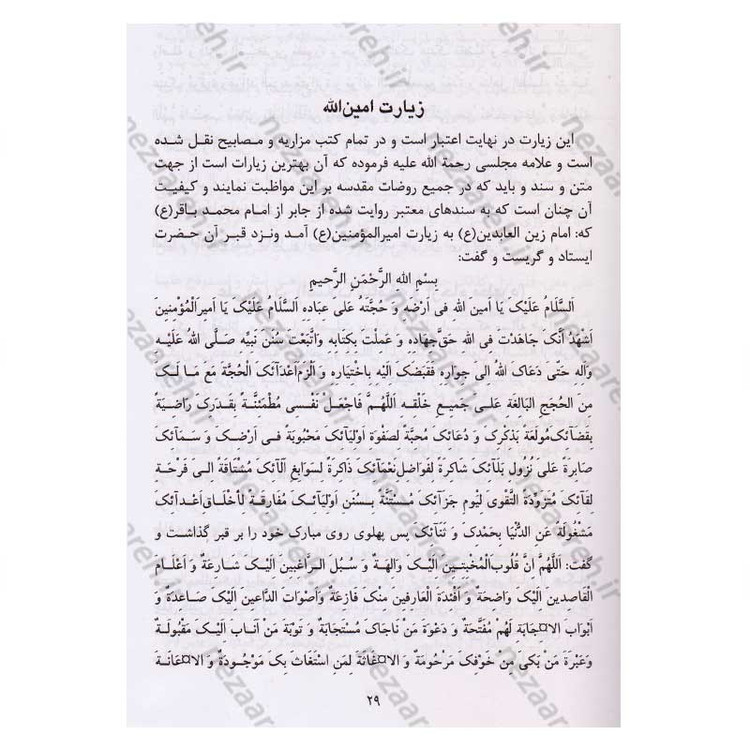 زیارت امین‌الله
این زیارت در نهایت اعتبار است و در تمام کتب مزاریه و مصابیح نقل شده
است و علامه مجلسی رحمة الله علیه فرموده که آن بهترین زیارات است از جهت
متن و سند و باید که در جمیع روضات مقدسه بر این مواظبت نمایند و کیفیت
آن چنان است که به سندهای معتبر روایت شده از جابر از امام محمد باقر(ع)
که: امام زین العابدین(ع) به زیارت امیرالمؤمنین(ع) آمد ونزد قبر آن حضرت
ایستاد و گریست و گفت:
بِسْمِ اللهِ الرَّحْمَنِ الرَّحیمِ
اَلسَّلَامُ عَلَیْکَ یَا اَمینَ اللهِ فِی اَرْضِهِ وَ حُجَّتَهُ عَلیَ عِبادِهِ اَلسَّلَامُ عَلَیْکَ یَا اَمیرَالْمُؤْمِنینَ
اَشْهَدُ اَنَّکَ جَاهَدْتَ فِی اللهِ حَقَّ جِهَادِهِ وَ عَمِلْتَ بِکِتَابِهِ وَاتَّبَعْتَ سُنَنَ نَبِیِّهِ صَلَّی اللهُ عَلَیْهِ
وَالِهِ حَتّیَ دَعَاکَ اللهُ الیَ جِوارِهِ فَقَبَضَکَ اِلَیْهِ بِاخْتِیَارِهِ وَ اَلْزَمَ اَعْدَآئَکَ الْحُجَّةَ مَعَ مَا لَـکَ
مِنَ الحُجَجِ البَالِغَةِ عَلَـی جَمیـعِ خَلْقِـهِ اَللَّهُـمَّ فَاجْعَـلْ نَفْـسی مُطْمَئِنَّـةً بِقَـدَرِکَ رَاضِیَةً
بِقَضَآئِکَ مُولَعَةً بِذِکْرِکَ وَ دُعَائِکَ مُحِبَّةً لِصَفْوَةِ اَوْلِیَآئِکَ مَحْبُوبَةً فـی اَرْضِـکَ وَ سَمَـآئِکَ
صَابِرَةً عَلیَ نُزُولِ بَلَآئِکَ شَاکِرَةً لِفَوَاضِلِ نَعْمَآئِکَ ذَاکِرَةً لِسَوَابِغِ آلَآئِکَ مُشْتَاقَةً اِلـی فَرْحَـةِ
لِقَآئِکَ مُتَزَوِّدَةً التَّقْوَی لِیَوْمِ جَزَآئِکَ مُسْتَنَّةً بِسُنَنِ اَوْلِیَآئِکَ مُفَارِقَةً لِاَخْلَاقِ اَعْدَآئِکَ
مَشْغُولَةً عَنِ الدُّنْیَا بِحَمْدِکَ وَ ثَنَآئِکَ پس پهلوی روی مبارک خود را بر قبر گذاشت و
گفت: اَللَّهُمَّ اِنَّ قُلُوبَ الْمُخْبِتینَ اِلَیْـکَ وَالِهَةٌ وَ سُبُـلَ الـرَّاغِبینَ اِلَیْـکَ شَـارِعَةٌ وَ اَعْلَـامَ
القَاصِدینَ اِلَیْکَ وَاضِحَةٌ وَ اَفْئِدَةَ العَارِفینَ مِنْکَ فَازِعَةٌ وَاَصْوَاتَ الدَّاعینَ اِلَیْکَ صَاعِدَةٌ وَ
اَبْوَابَ الا¤جَابَةِ لَهُمْ مُفَتَّحَةٌ وَ دَعْوَةَ مَنْ نَاجَاکَ مُسْتَجَابَةٌ وَ تَوْبَةَ مَنْ اَنَابَ اِلَیْـکَ مَقْبُولَةٌ
وَعَبْرَةَ مَنْ بَکیَ مِنْ خَوْفِکَ مَرْحُومَةٌ وَ الا¤غَاثَةَ لِمَنِ اسْتَغَاثَ بِکَ مَوْجُـودَةٌ وَ الا¤عَانَـةَ
۲۹
nezaareh.ir